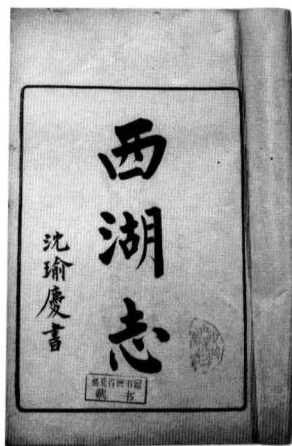 西湖志
沈瑜慶書
藏书